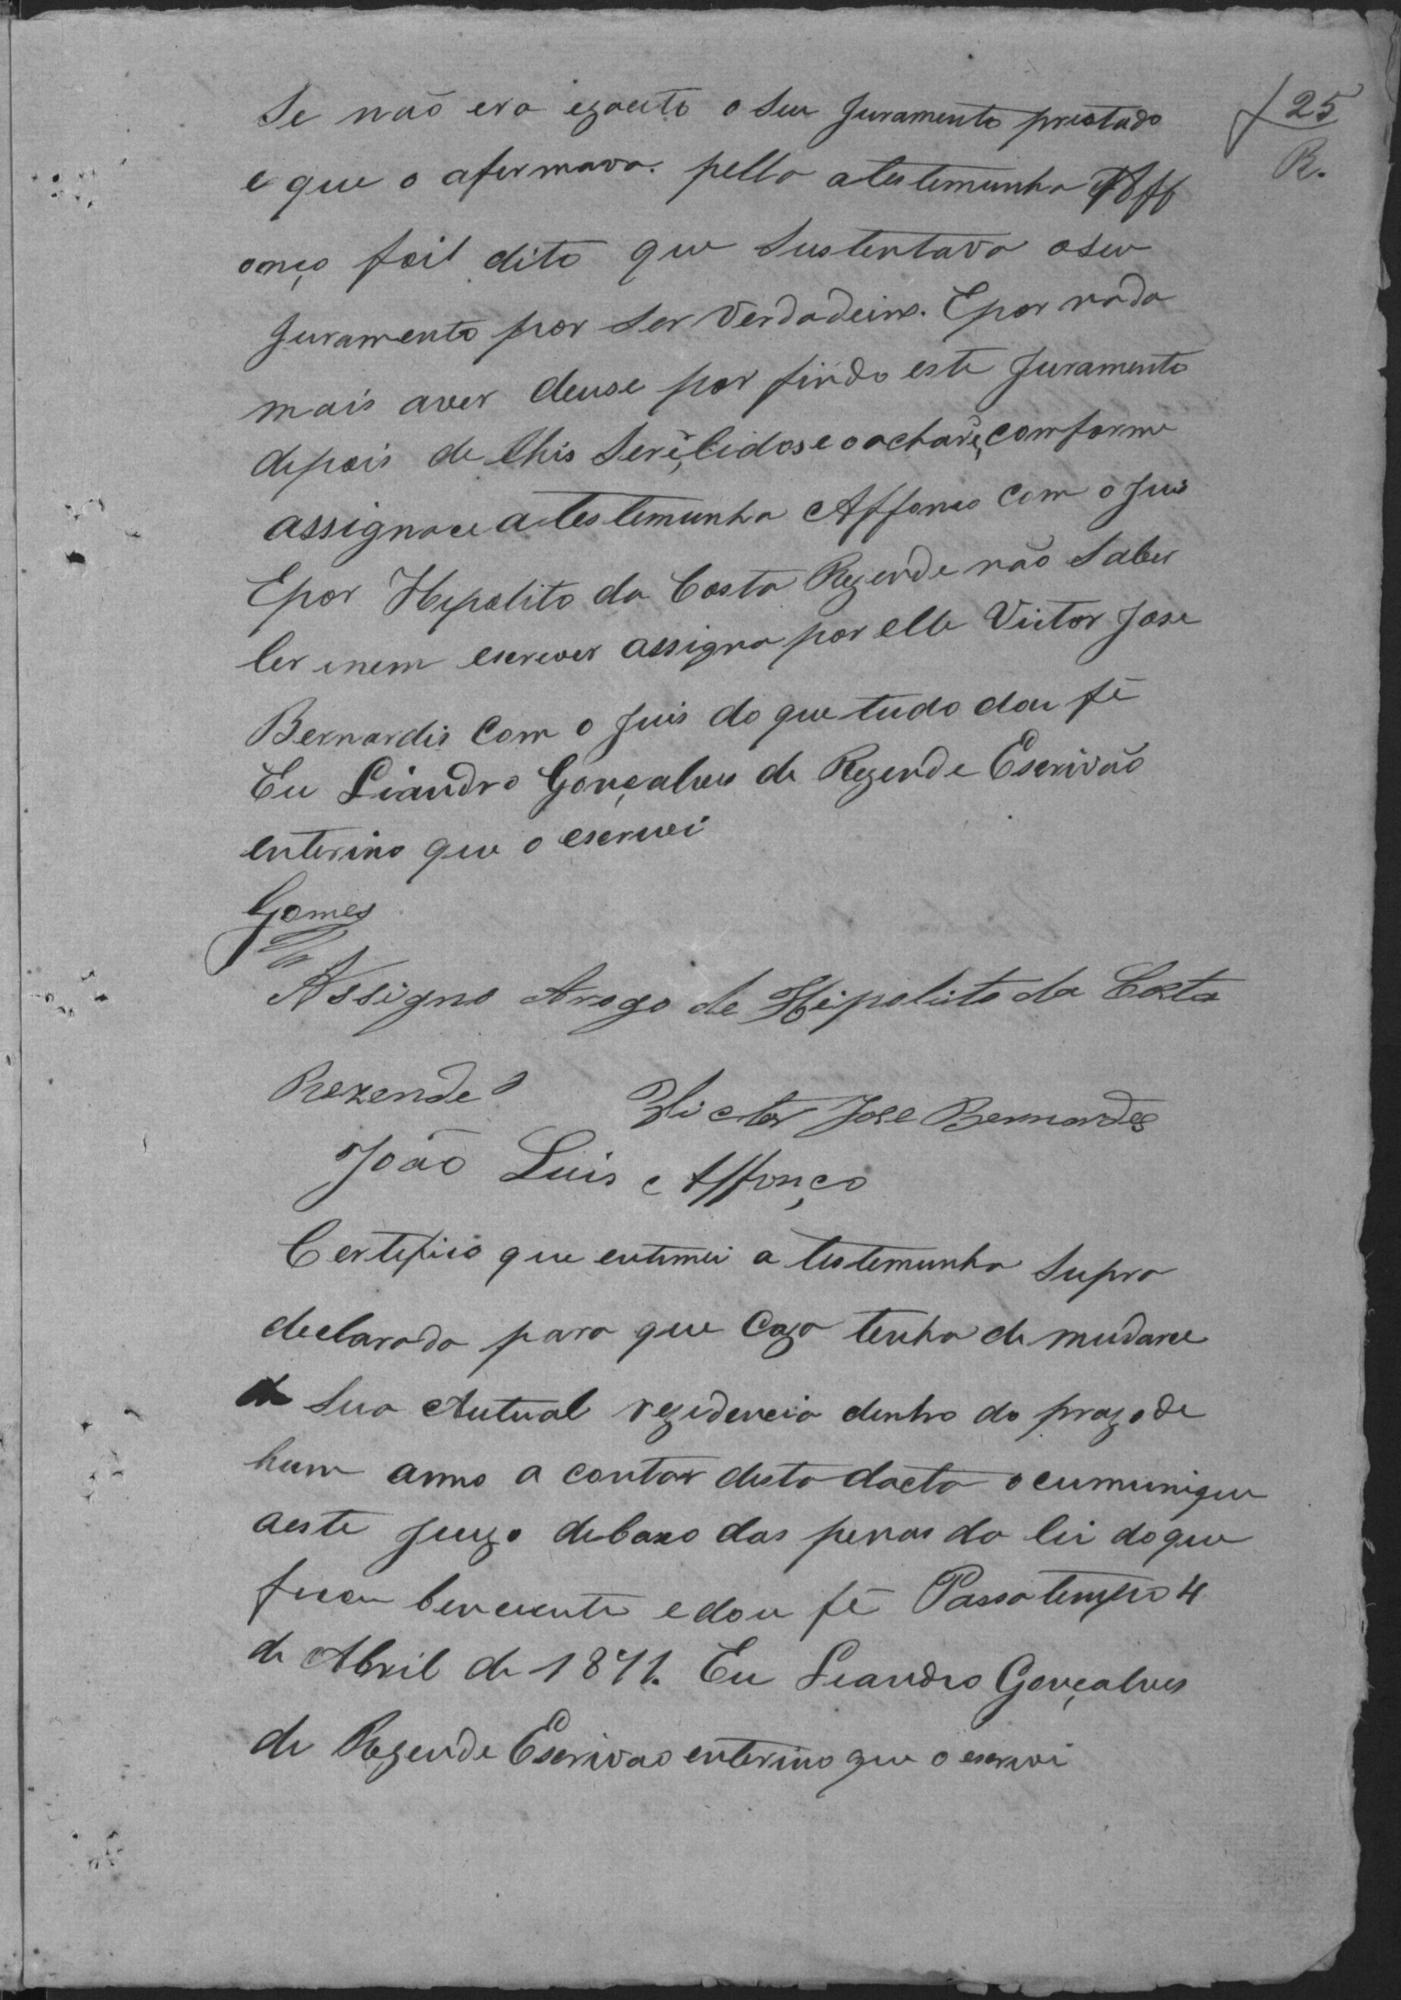 f 25
R.
Se não era ezacto o Seu Juramento prestado
e que o afirmava. pella atestemunha Aff
onço foil dito que Sustentava oseu
Juramento por Ser Verdadeiro. Epor nada
mais aver deuse por findo este Juramento
depois de lhis Serẽ, lidose o acharẽ, comforme
assignace atestemunha Affonço com o Juis
Epor Hipolito da Costa Rezende não Saber
ler inem escrever assigna por elle Victor Jose
Bernardis Com o Juis do que tudo dou fé
Eu Liandro Gonçalves de Rezende Escrivão
enterino que o escrevi
Gomes
Assigno Arogo de Hipolito da Costa
Rezende
Victor Jose Bernardes
João Luis Affonço
Certifico que entimei a testemunha Supra
declarada para que Cazo tenha de mudarce
de Sua Autual rezidencia dentro do prazo de
hum anno a contar desta dacta o cumunique
aeste Juizo debaxo das penas da lei doque
ficou bem ciente edou fé Passatempo 4
de Abril de 1871. Eu Leandro Gonçalves
de Rezende Escrivao enterino que o escrivi